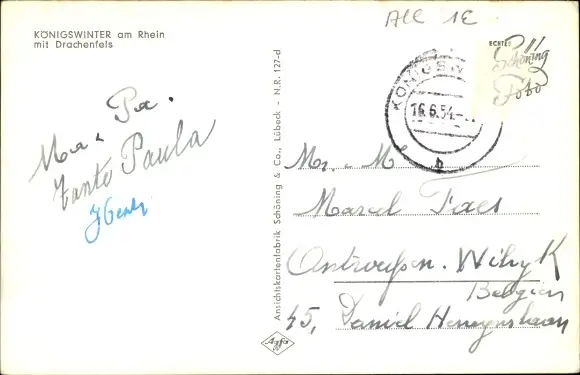 All 1E
KÖNIGSWINTER am Rhein
mit Drachenfels
ECHTES
Schöning
Foto
KÖNIGSW
16.6.54.-
b
Ma - Pa.
Tante Paula
Ansichtskartenfabrik Schöning & Co., Lübeck - N.R. 127-d
Agfa
Mr. M
Marcel Faes
Antwerpen. Wilryk
Belgien
45, Daniel